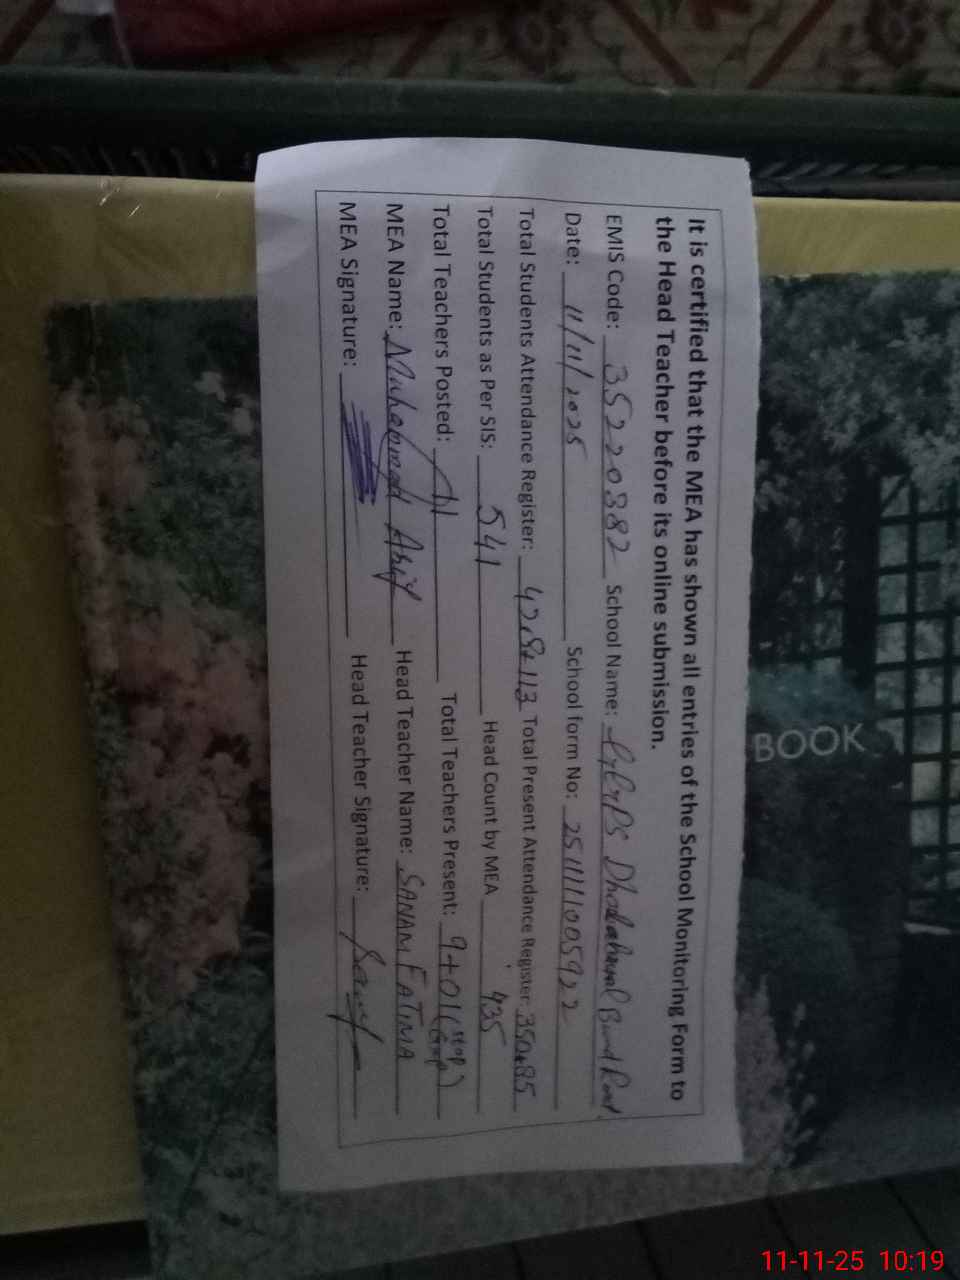 It is certified that the MEA has shown all entries of the School Monitoring Form to
the Head Teacher before its online submission.
EMIS Code: 35220382 School Name: Bund Road
Date: 11/11/2025 School form No: 2511111005922
Total Students Attendance Register: 428+113 Total Present Attendance Register: 350+85
Total Students as Per SIS: 541 Head Count by MEA 435
Total Teachers Posted: 11 Total Teachers Present: 9+01(
MEA Name: Muhammad Head Teacher Name: SANAM FATIMA
MEA Signature: Head Teacher Signature:
BOOK
11-11-25 10:19